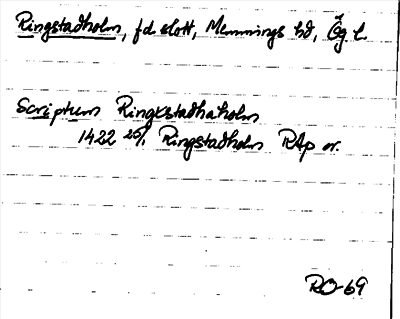 Ringstadholm, fd slott, Memmings hd, Ög l.
Scriptum Ringxstadhaholm
1422 25/1 Ringstadholm RAp or.
RO-69